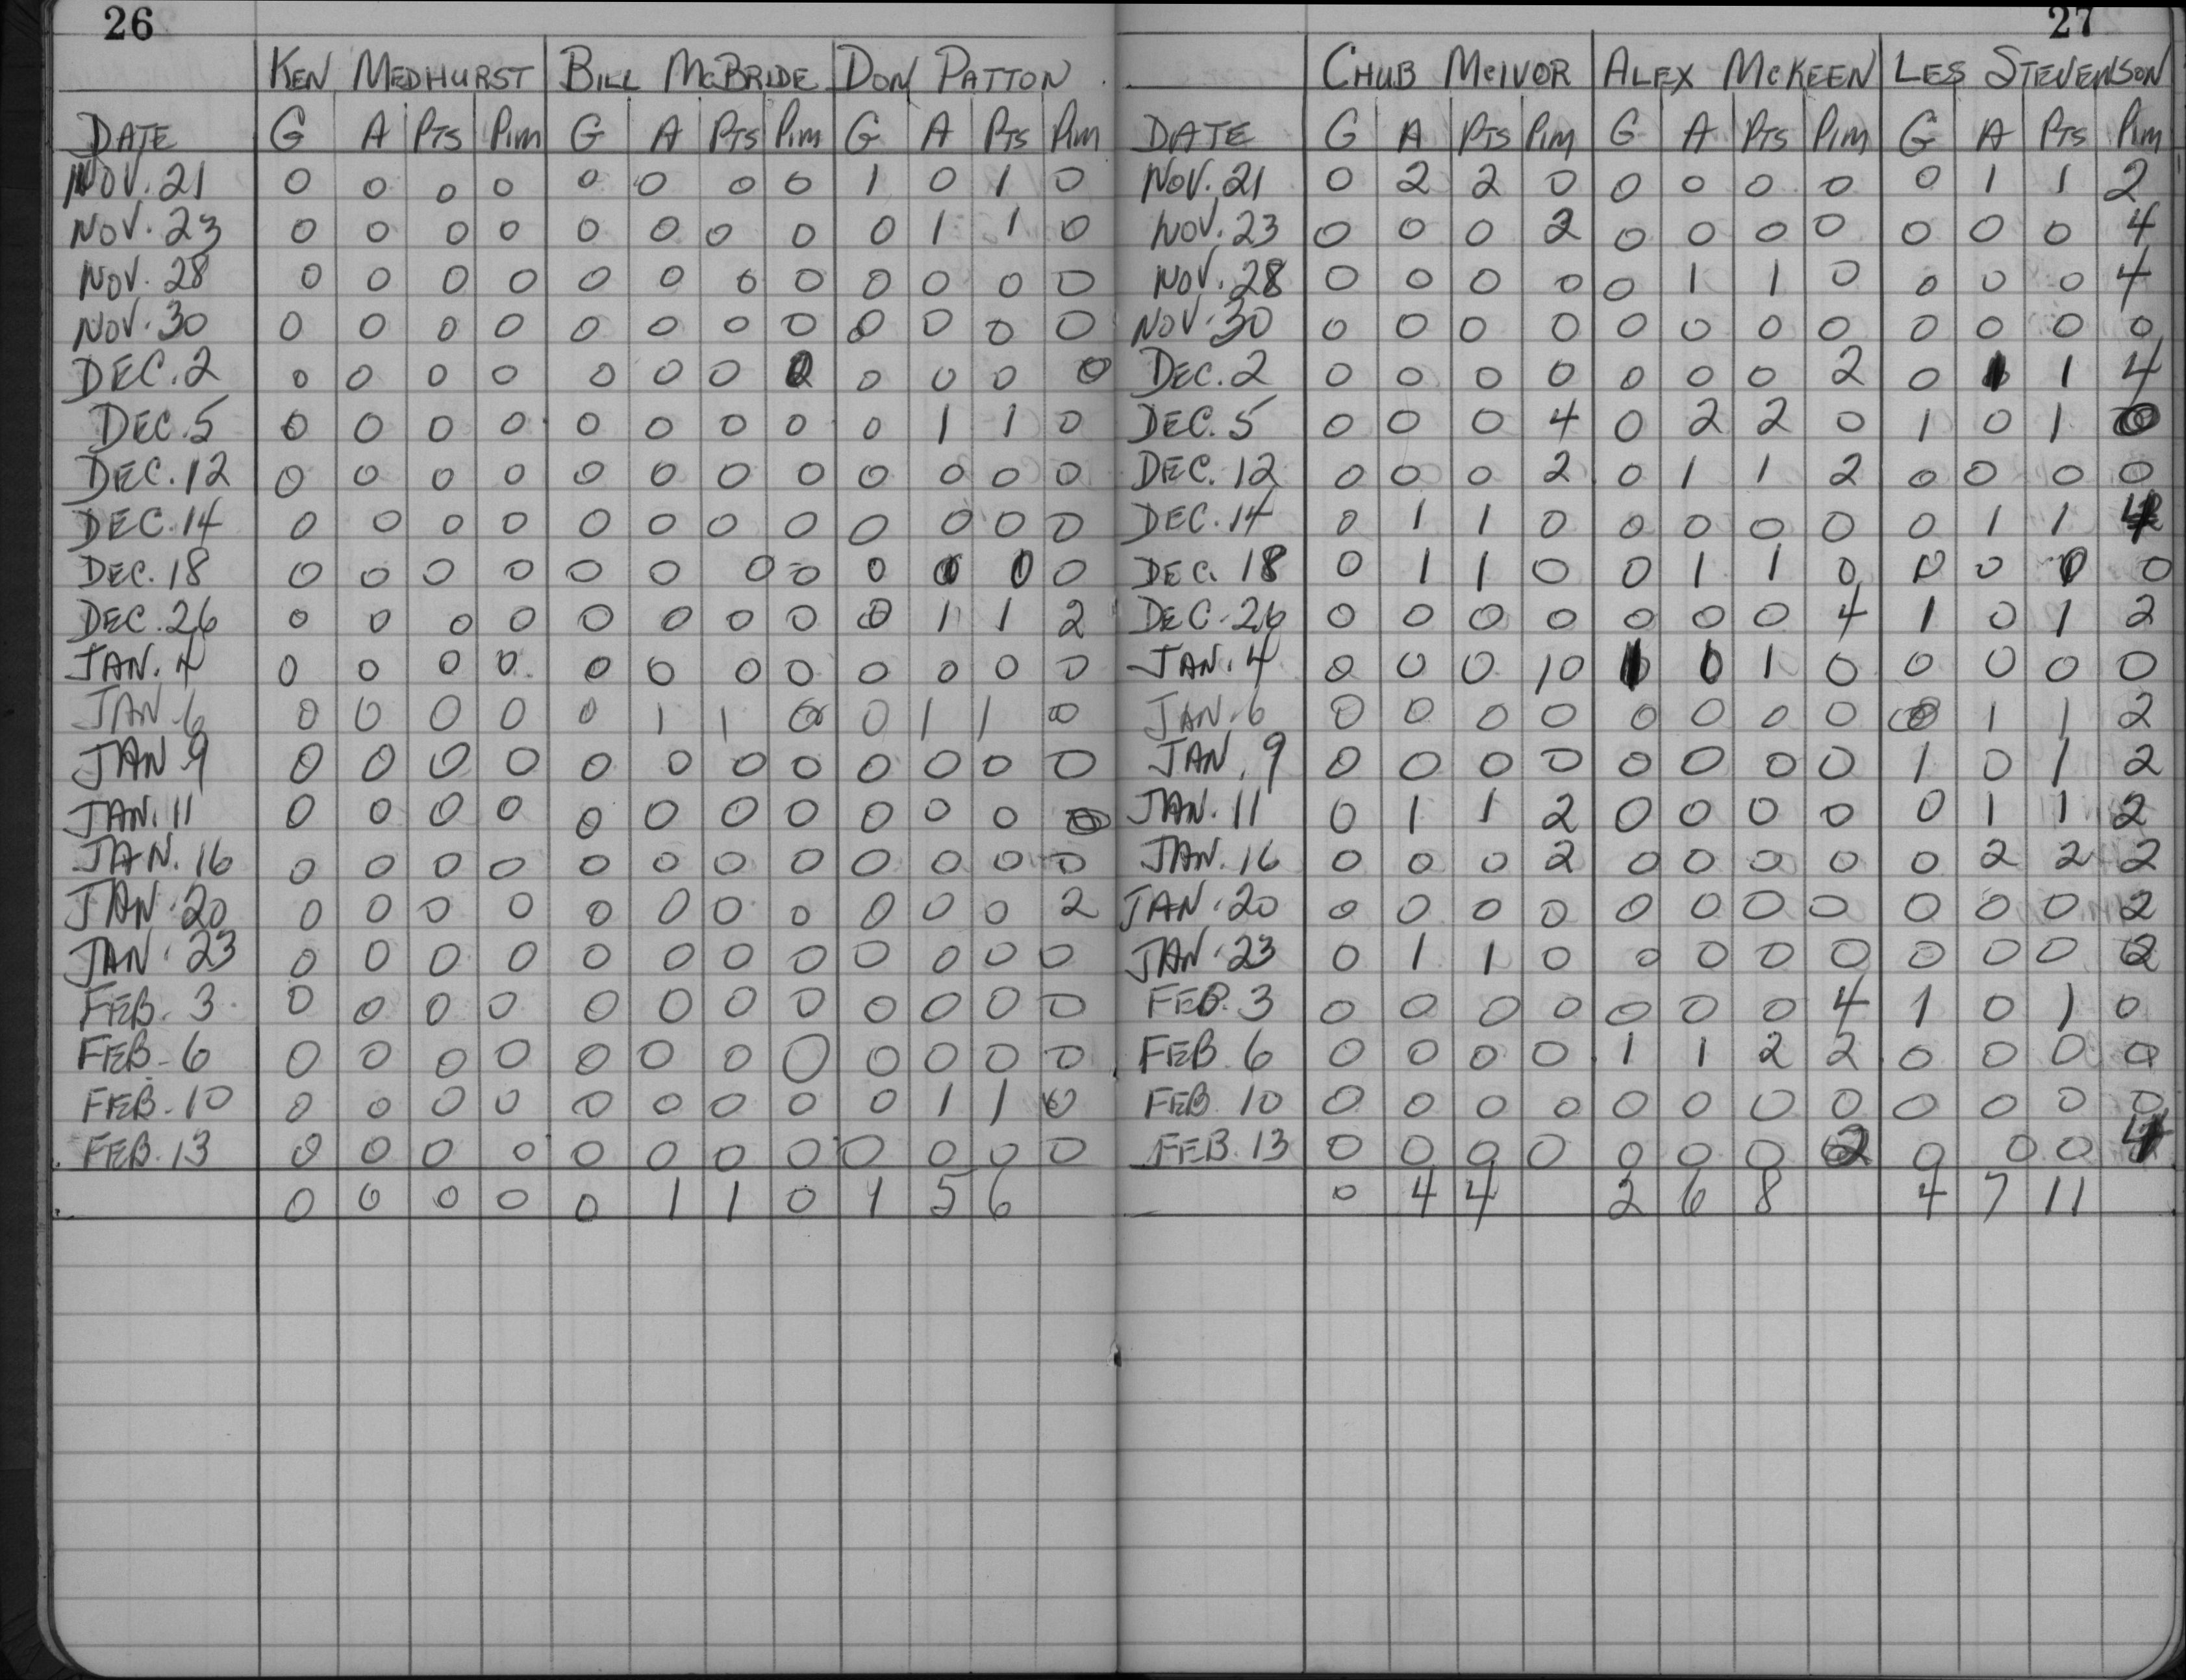 26
KEN MEDHURST BILL MCBRIDE DON PATTON
DATE G A PTS PIM G A PTS PIM G A PTS PIM
NOV. 21 0 0 0 0 0 0 0 0 1 0 1 0
NOV. 23 0 0 0 0 0 0 0 0 0 1 1 0
NOV. 28 0 0 0 0 0 0 0 0 0 0 0 0
NOV. 30 0 0 0 0 0 0 0 0 0 0 0 0
DEC. 2 0 0 0 0 0 0 0 0 0 0 0
DEC. 5 0 0 0 0 0 0 0 0 0 1 1 0
DEC. 12 0 0 0 0 0 0 0 0 0 0 0 0
DEC. 14 0 0 0 0 0 0 0 0 0 0 0 0
DEC. 18 0 0 0 0 0 0 0 0 0 0 0 0
DEC. 26 0 0 0 0 0 0 0 0 0 1 1 2
JAN. 4 0 0 0 0 0 0 0 0 0 0 0 0
JAN. 6 0 0 0 0 0 1 1 0 0 1 1 0
JAN 9 0 0 0 0 0 0 0 0 0 0 0 0
JAN. 11 0 0 0 0 0 0 0 0 0 0 0 0
JAN. 16 0 0 0 0 0 0 0 0 0 0 0 0
JAN. 20 0 0 0 0 0 0 0 0 0 0 0 2
JAN. 23 0 0 0 0 0 0 0 0 0 0 0 0
FEB. 3 0 0 0 0 0 0 0 0 0 0 0 0
FEB. 6 0 0 0 0 0 0 0 0 0 0 0 0
FEB. 10 0 0 0 0 0 0 0 0 0 1 1 0
FEB. 13 0 0 0 0 0 0 0 0 0 0 0 0
0 0 0 0 0 1 1 0 1 5 6
27
CHUB MCIVOR ALEX MCKEEN LES STEVENSON
DATE G A PTS PIM G A PTS PIM G A PTS PIM
NOV. 21 0 2 2 0 0 0 0 0 0 1 1 2
NOV. 23 0 0 0 2 0 0 0 0 0 0 0 4
NOV. 28 0 0 0 0 0 1 1 0 0 0 0 4
NOV. 30 0 0 0 0 0 0 0 0 0 0 0 0
DEC. 2 0 0 0 0 0 0 0 2 0 1 1 4
DEC. 5 0 0 0 4 0 2 2 0 1 0 1 0
DEC. 12 0 0 0 2 0 1 1 2 0 0 0 0
DEC. 14 0 1 1 0 0 0 0 0 0 1 1 4
DEC. 18 0 1 1 0 0 1 1 0 0 0 0 0
DEC. 26 0 0 0 0 0 0 0 4 1 0 1 2
JAN. 4 0 0 0 10 1 0 1 0 0 0 0 0
JAN. 6 0 0 0 0 0 0 0 0 0 1 1 2
JAN. 9 0 0 0 0 0 0 0 0 1 0 1 2
JAN. 11 0 1 1 2 0 0 0 0 0 1 1 2
JAN. 16 0 0 0 2 0 0 0 0 0 2 2 2
JAN. 20 0 0 0 0 0 0 0 0 0 0 0 2
JAN. 23 0 1 1 0 0 0 0 0 0 0 0 2
FEB. 3 0 0 0 0 0 0 0 4 1 0 1 0
FEB 6 0 0 0 0 1 1 2 2 0 0 0 0
FEB 10 0 0 0 0 0 0 0 0 0 0 0 0
FEB. 13 0 0 0 0 0 0 0 2 0 0 0 4
0 4 4 2 6 8 4 7 11